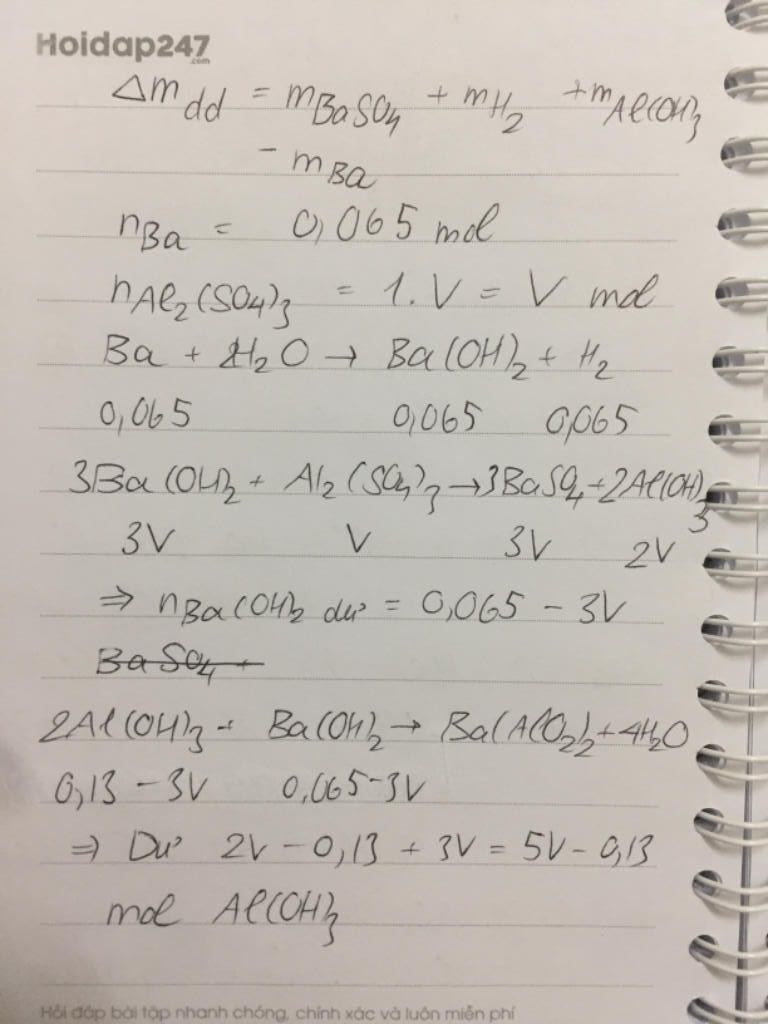 Hoidap247
.com
Δm dd = m BaSO4 + m H2 + m Al(OH)3
- m Ba
n Ba = 0,065 mol
n Al2(SO4)3 = 1.V = V mol
Ba + 2H2O → Ba(OH)2 + H2
0,065 0,065 0,065
3Ba(OH)2 + Al2(SO4)3 → 3BaSO4 + 2Al(OH)3
3V V 3V 2V
⇒ n Ba(OH)2 dư = 0,065 - 3V
BaSO4 +
2Al(OH)3 + Ba(OH)2 → Ba(AlO2)2 + 4H2O
0,13 - 3V 0,065-3V
⇒ Dư 2V - 0,13 + 3V = 5V - 0,13
mol Al(OH)3
Hỏi đáp bài tập nhanh chóng, chính xác và luôn miễn phí